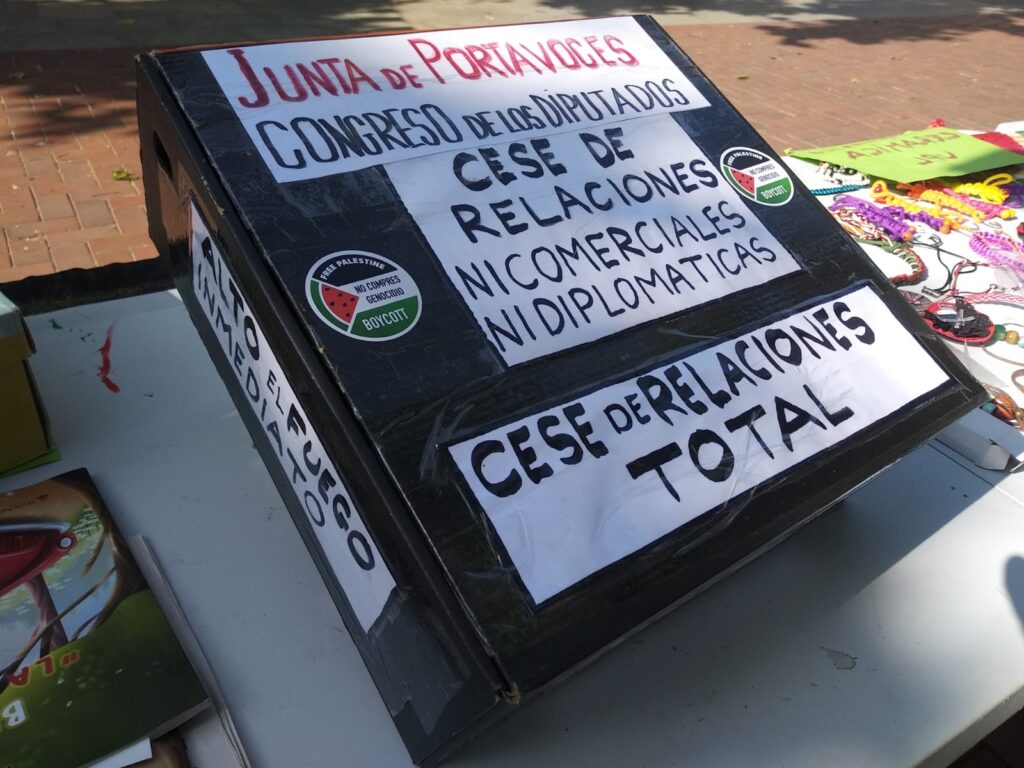 JUNTA DE PORTAVOCES
CONGRESO DE LOS DIPUTADOS
CESE DE
RELACIONES
NI COMERCIALES
NI DIPLOMATICAS
CESE DE RELACIONES
TOTAL
ALTO EL FUEGO
INMEDIATO
FREE PALESTINE
NO COMPRES
GENOCIDIO
BOYCOTT
FREE PALESTINE
NO COMPRES
GENOCIDIO
BOYCOTT
"LA
B